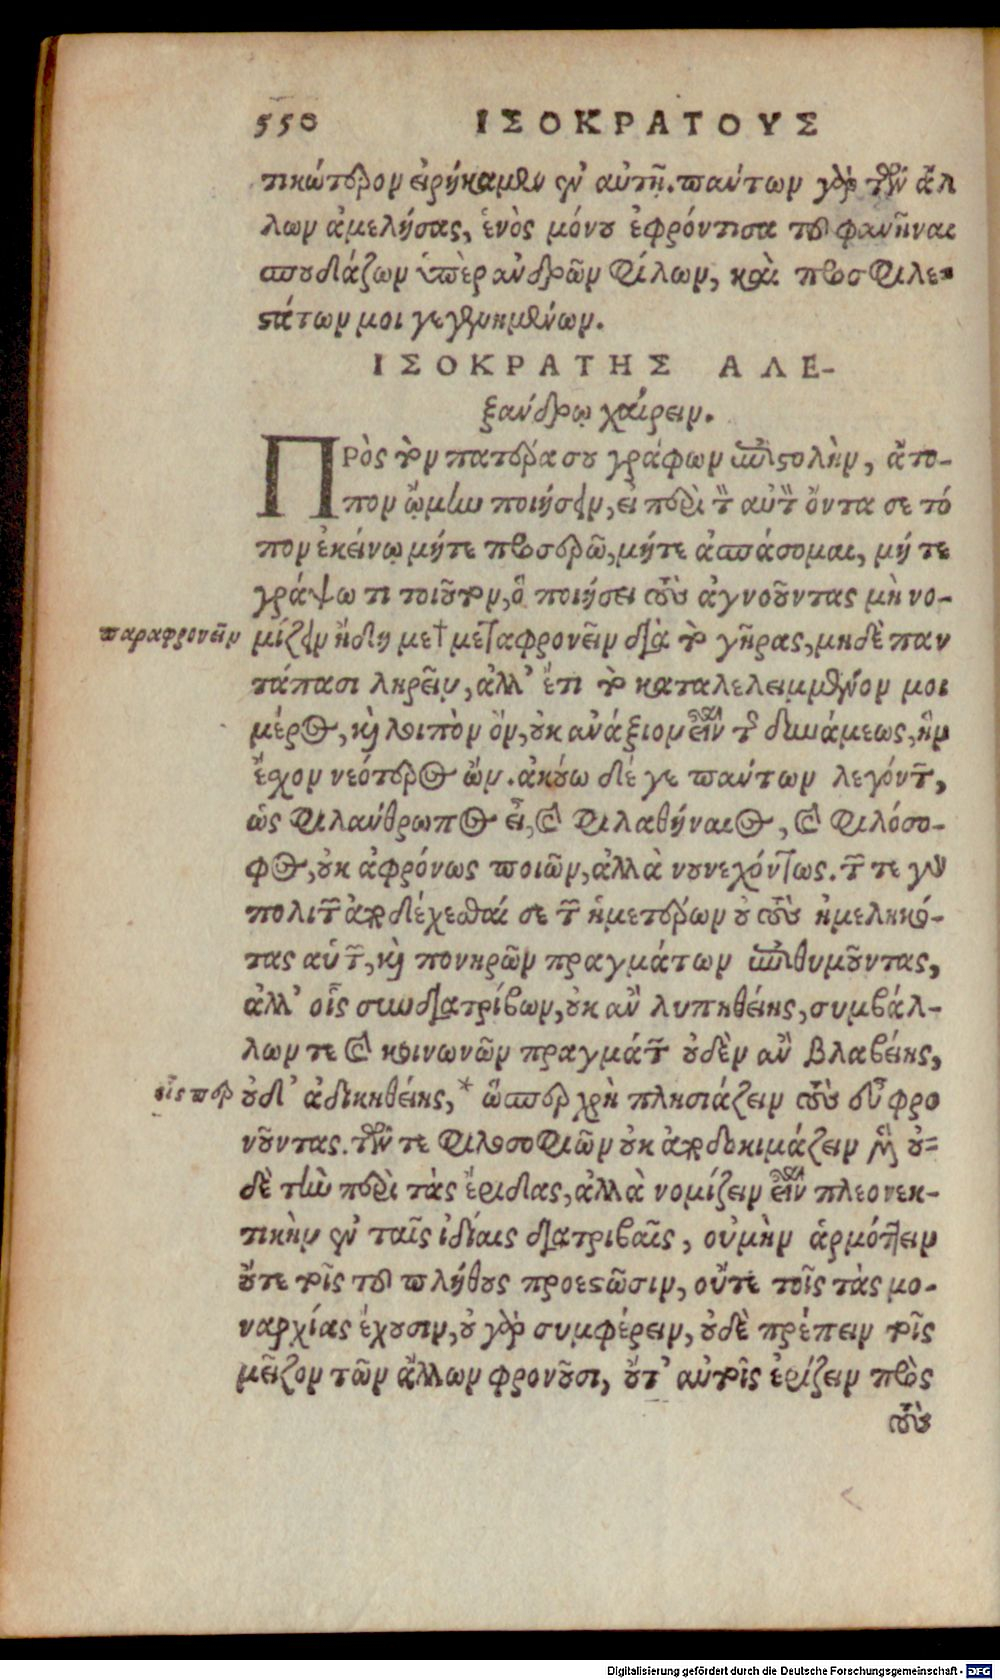 550 ΙΣΟΚΡΑΤΟΥΣ
τικώτερον εἰρήκαμεν ἐν αὐτῇ. πάντων γὰρ τῶν ἄλ
λων ἀμελήσας, ἑνὸς μόνου ἐφρόντισα τοῦ φανῆναι
σπουδάζων ὑπὲρ ἀνδρῶν φίλων, καὶ προσφιλε-
στάτων μοι γεγενημένων.
ΙΣΟΚΡΑΤΗΣ ΑΛΕ-
ξάνδρῳ χαίρειν.
ΠΡὸς τὸν πατέρα σου γράφων ἐπιστολὴν, ἄτο-
πον ᾤμην ποιήσειν, εἰ περὶ τὸν αὐτὸν ὄντα σε τό
πον ἐκείνῳ μήτε προσερῶ, μήτε ἀσπάσομαι, μήτε
γράψω τι τοιοῦτον, ὃ ποιήσει τοὺς ἀγνοοῦντας μὴ νο-
παραφρονεῖν μίζειν ἤδη με† μεταφρονεῖν διὰ τὸ γῆρας, μηδὲ παν
τάπασι ληρεῖν, ἀλλ' ἔτι τὸ καταλελειμμένον μοι
μέρος, καὶ λοιπὸν ὂν, οὐκ ἀνάξιον εἶναι τῆς δυνάμεως, ἣν
ἔχον νεότερος ὤν. ἀκούω δέ γε πάντων λεγόντων,
ὡς φιλάνθρωπος εἶ, καὶ φιλαθήναιος, καὶ φιλόσο-
φος, οὐκ ἀφρόνως ποιῶν, ἀλλὰ νουνεχόντως. τῶν τε γὰρ
πολιτῶν ἀποδέχεσθαί σε τῶν ἡμετέρων οὐ τοὺς ἠμεληκό-
τας αὑτῶν, καὶ πονηρῶν πραγμάτων ἐπιθυμοῦντας,
ἀλλ' οἷς συνδιατρίβων, οὐκ ἂν λυπηθείης, συμβάλ-
λων τε καὶ κοινωνῶν πραγμάτων οὐδὲν ἂν βλαβείης,
οἷς περ οὐδ' ἀδικηθείης, * ὥσπερ χρὴ πλησιάζειν τοὺς εὖ φρο
νοῦντας. τῶν τε φιλοσοφιῶν οὐκ ἀποδοκιμάζειν μὲν οὐ-
δὲ τὴν περὶ τὰς ἔριδας, ἀλλὰ νομίζειν εἶναι πλεονεκ-
τικὴν ἐν ταῖς ἰδίαις διατριβαῖς, οὐ μὴν ἁρμόττειν
οὔτε τοῖς τοῦ πλήθους προεστῶσιν, οὔτε τοῖς τὰς μο-
ναρχίας ἔχουσιν, οὐ γὰρ συμφέρειν, οὐδὲ πρέπειν τοῖς
μεῖζον τῶν ἄλλων φρονοῦσι, οὔτ' αὐτοῖς ἐρίζειν πρὸς
τοὺς
Digitalisierung gefördert durch die Deutsche Forschungsgemeinschaft - DFG